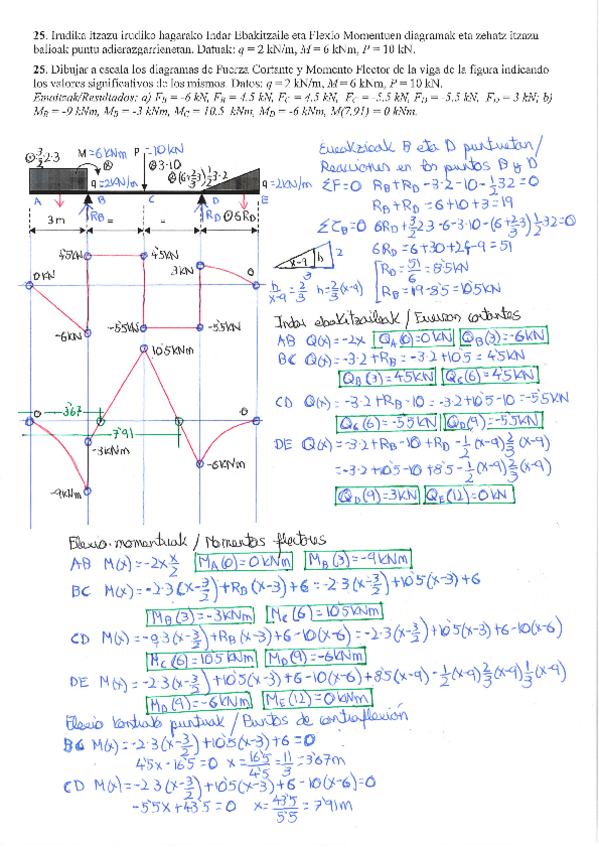 25. Irudika itzazu irudiko hagarako Indar Ebakitzaile eta Flexio Momentuen diagramak eta zehatz itzazu
balioak puntu adierazgarrienetan. Datuak: q = 2 kN/m, M = 6 kNm, P = 10 kN.
25. Dibujar a escala los diagramas de Fuerza Cortante y Momento Flector de la viga de la figura indicando
los valores significativos de los mismos. Datos: q = 2 kN/m, M = 6 kNm, P = 10 kN.
Emaitzak/Resultados: a) F_B = -6 kN, F_B = 4.5 kN, F_C = 4.5 kN, F_C = -5.5 kN, F_D = -5.5 kN, F_D = 3 kN; b)
M_B = -9 kNm, M_B = -3 kNm, M_C = 10.5 kNm, M_D = -6 kNm, M(7,91) = 0 kNm.
M=6kNm P=10kN
q=2kN/m
q=2kN/m
A B C D E
3m = = =
R_B R_D
0kN
4'5kN 4'5kN
3kN 0
-6kN -5'5kN -5'5kN
10'5kNm
0 3'67 0
7'91
-3kNm
-6kNm
-9kNm
Erreakzioak B eta D puntuetan/
Reacciones en los puntos B y D
ΣF=0 R_B+R_D-3·2-10-½3·2=0
R_B+R_D=6+10+3=19
Στ_B=0 6R_D+3/2·2·3-6-3·10-(6+2/3·3)½3·2=0
6R_D=6+30+24-9=51
R_D=51/6=8'5kN
R_B=19-8'5=10'5kN
x-9 h 2
3
h/(x-9)=2/3 h=2/3(x-9)
Indar ebakitzaileak / Fuerzas cortantes
AB Q(x)=-2x Q_A(0)=0kN Q_B(3)=-6kN
BC Q(x)=-3·2+R_B=-3·2+10'5=4'5kN
Q_B(3)=4'5kN Q_C(6)=4'5kN
CD Q(x)=-3·2+R_B-10=-3·2+10'5-10=-5'5kN
Q_C(6)=-5'5kN Q_D(9)=-5'5kN
DE Q(x)=-3·2+R_B-10+R_D-½(x-9)2/3(x-9)
=-3·2+10'5-10+8'5-½(x-9)2/3(x-9)
Q_D(9)=3kN Q_E(12)=0kN
Flexio-momentuak / Momentos flectores
AB M(x)=-2x x/2 M_A(0)=0kNm M_B(3)=-9kNm
BC M(x)=-2·3(x-3/2)+R_B(x-3)+6=-2·3(x-3/2)+10'5(x-3)+6
M_B(3)=-3kNm M_C(6)=10'5kNm
CD M(x)=-2·3(x-3/2)+R_B(x-3)+6-10(x-6)=-2·3(x-3/2)+10'5(x-3)+6-10(x-6)
M_C(6)=10'5kNm M_D(9)=-6kNm
DE M(x)=-2·3(x-3/2)+10'5(x-3)+6-10(x-6)+8'5(x-9)-½(x-9)2/3(x-9)1/3(x-9)
M_D(9)=-6kNm M_E(12)=0kNm
Flexio kontrako puntuak / Puntos de contraflexión
BC M(x)=-2·3(x-3/2)+10'5(x-3)+6=0
4'5x-16'5=0 x=16'5/4'5=11/3=3'67m
CD M(x)=-2·3(x-3/2)+10'5(x-3)+6-10(x-6)=0
-5'5x+43'5=0 x=43'5/5'5=7'91m